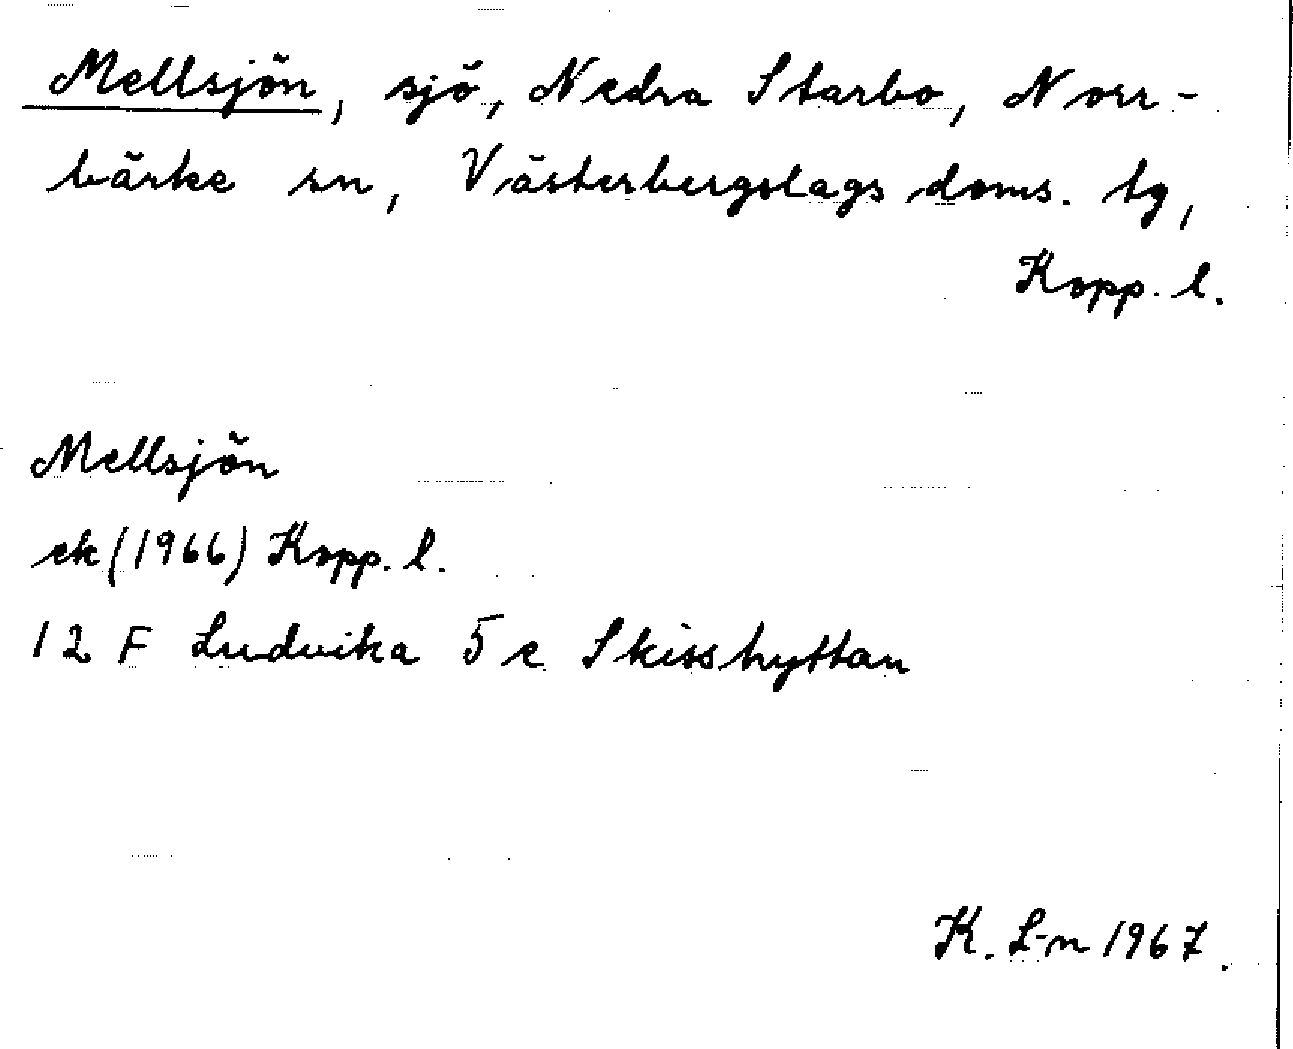 Mellsjön, sjö, Nedra Starbo, Norr-
bärke sn, Västerbergslags doms. tg,
Kopp. l.
Mellsjön
ek (1966) Kopp. l.
12 F Ludvika 5 e Skisshyttan
K. L-n 1967.